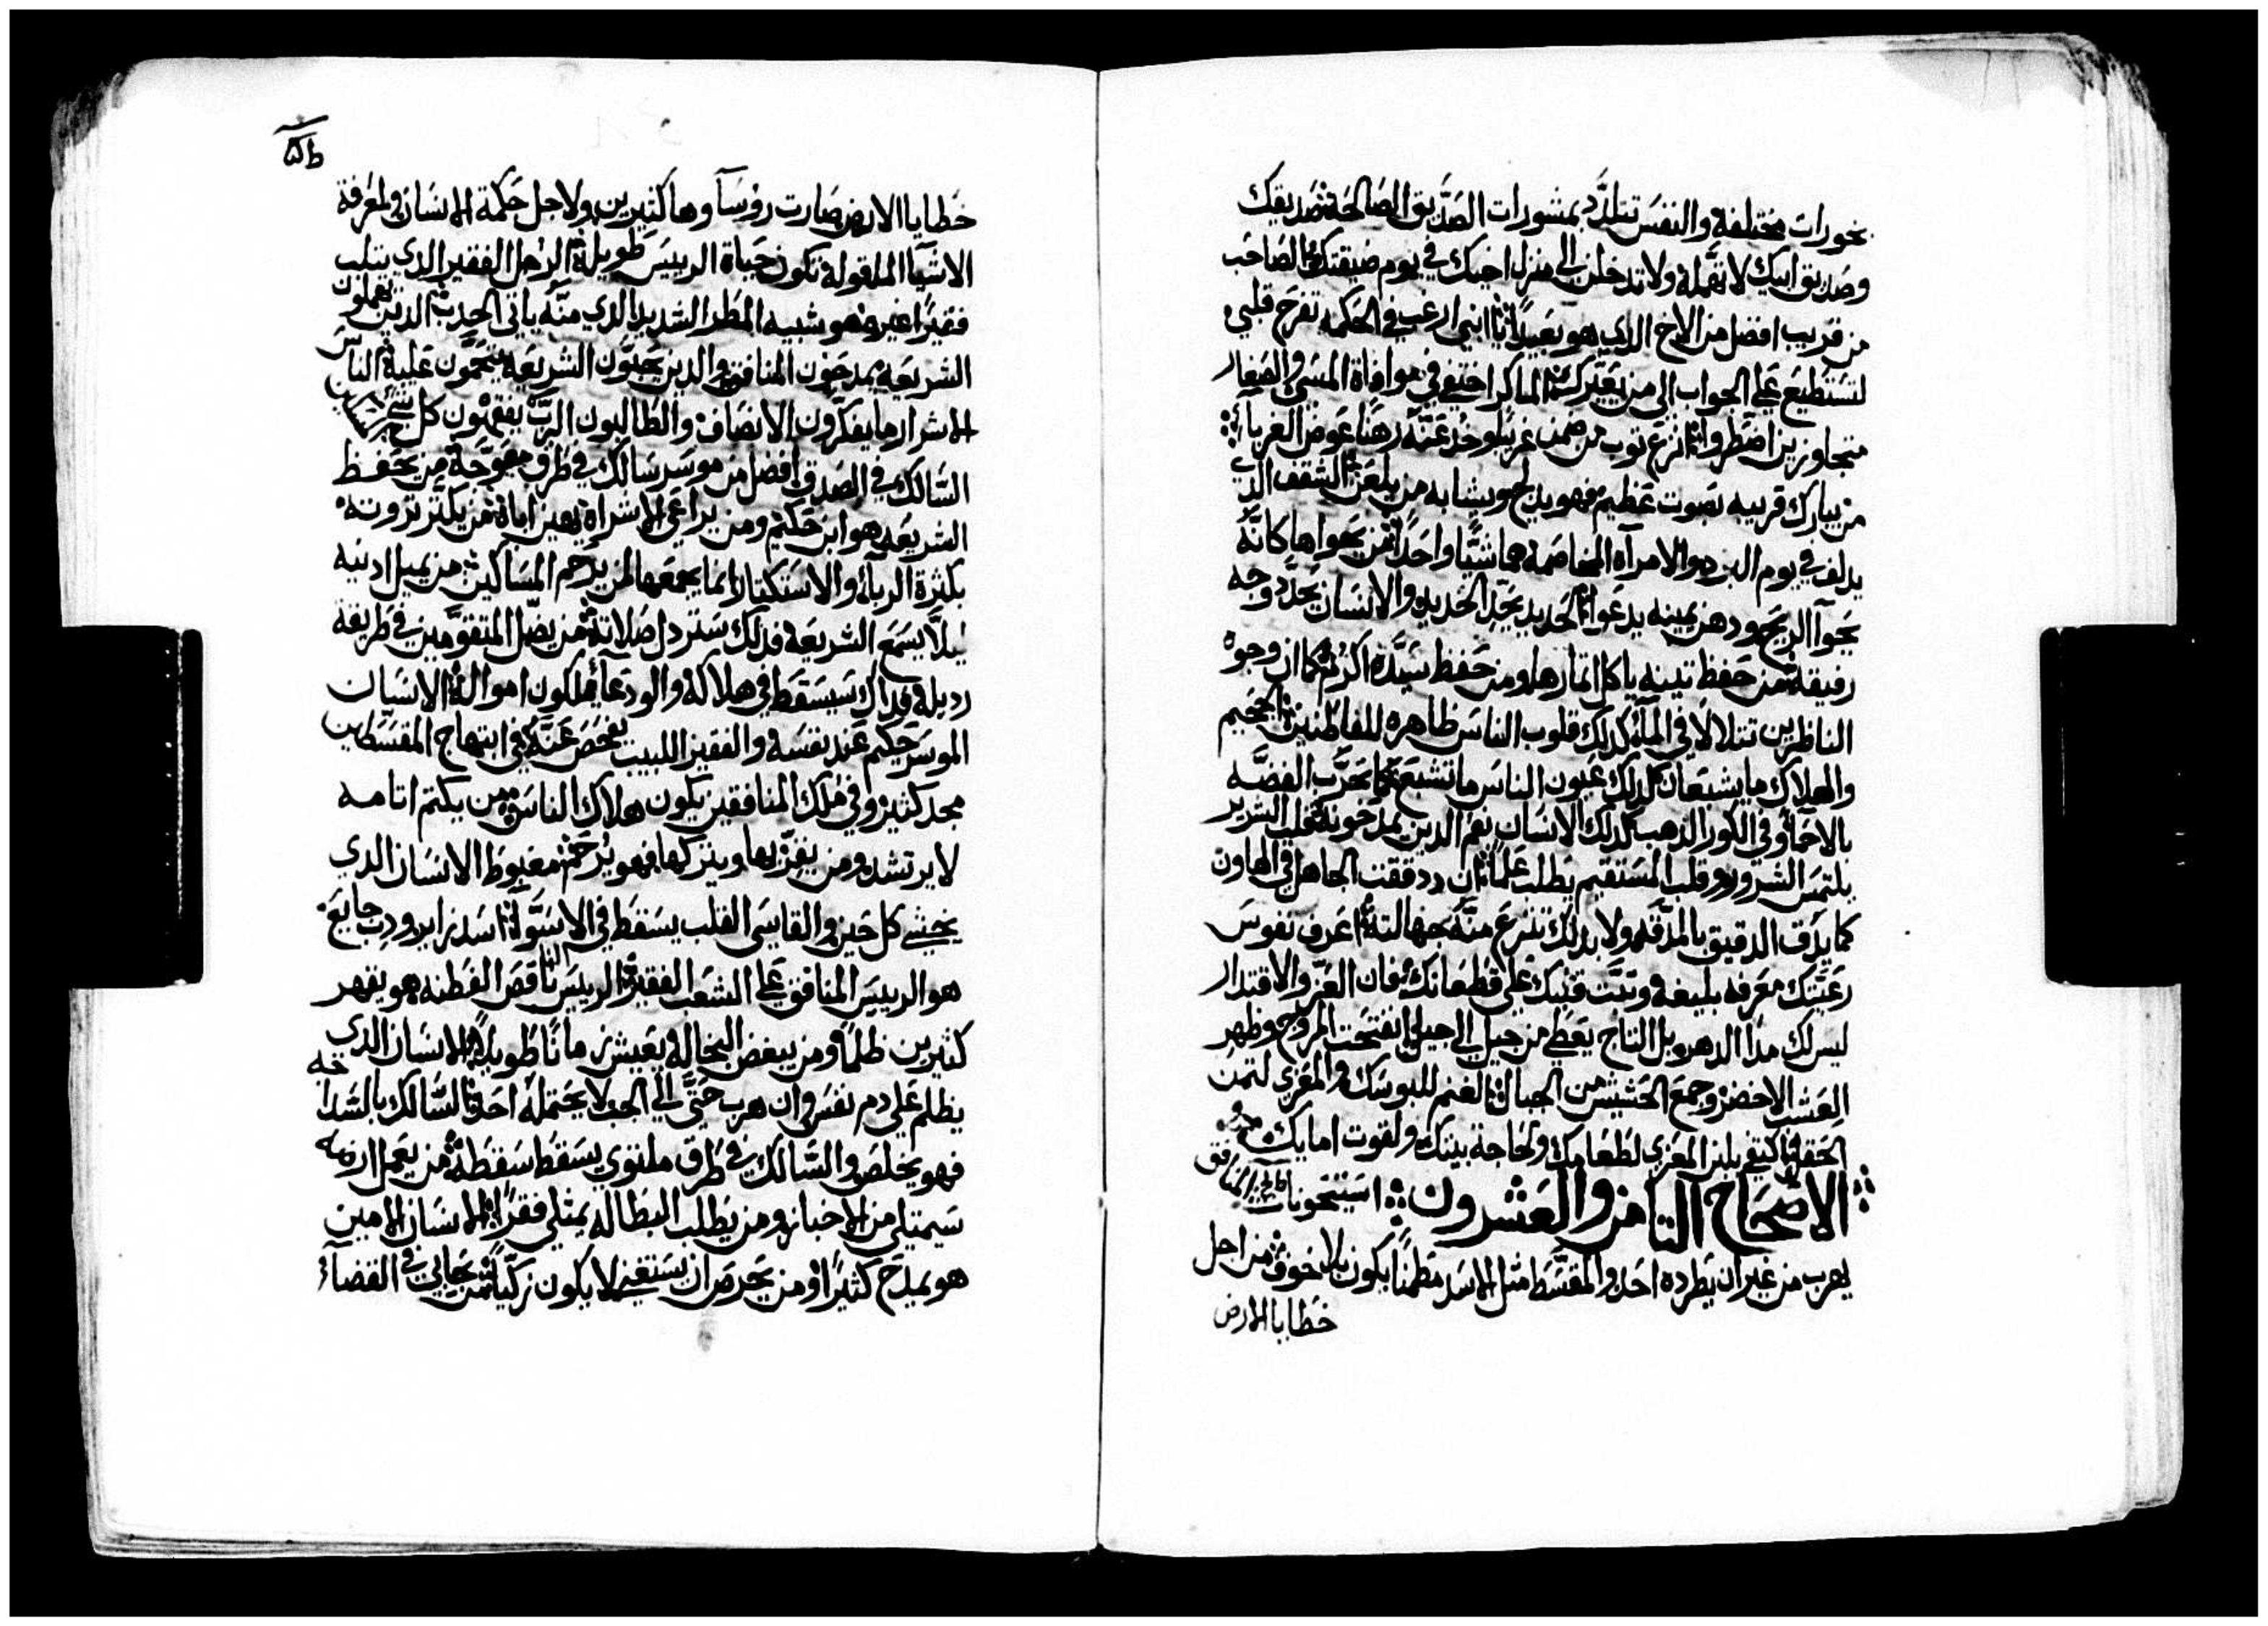 بخورات مختلفة والنفس تتلذد بمشورات الصديق الصالحة صديقك
وصديق ابيك لا تهمله ولا تدخلن الى منزل اخيك في يوم ضيقتك الصاحب
من قريب افضل من الاخ الدي هو بعيدا يا ابني ارغب في الحكمه تفرح قلبي
لتستطيع على الجواب الى من يعيرك الماكر اختفى في موافاة المسى والصغار
متجاوزين اضطروا انزع توب من ضمن غريبا وخد عنه رهنا عوض الغربا
من يبارك قريبه بصوت عظيم فهو يدلج ويشابه من يلعن الشقف الدي
يدلف في يوم البرد والامرآه المخاصمة هما شيا واحدا من يهواها كانه
يحوآ الريح ودهن يمينه يدعوا الحديد يحد الحديد والانسان يحدد وجه
رفيقه من حفظ تينه ياكل اتمارها ومن حفظ سيده اكرم كما ان وجوه
الناظرين تتلالا في المآء كدلك قلوب الناس ظاهره للفاطنين الجحيم
والهلاك ما يشبعان كدلك عيون الناس ما تشبع كما تجرب الفضه
بالاحمآ وفي الكور الدهب كدلك الانسان بفم الدين يمدحونه قلب الشرير
يلتمس الشرور وقلب المستقيم يطلب علما ان دققت الجاهل في الهاون
كما يدق الدقيق بالمدقه ولا بدلك تنزع منه جهالته اعرف نفوس
رعيتك معرفه بليغة وتبت قلبك على قطعانك فان العز والاقتدار
ليس لك مدا الدهر بل التاج يعطى من جيل الى جيل انفتحت المروج وظهر
العشب الاخضر وجمع الحشيش من الجبال الغنم للبوسك والمعزي لتمن
الحقل اكتفي بلبن المعزي لطعامك ولحاجة بيتك ولقوت امايك
الاصحاح التامن والعشرون استيخونات المنافق
يهرب من غير ان يطرده احد والمقسط متل الاسد مطمنا يكون بلا خوف من اجل
خطايا الارض
خطايا الارض صارت روسآ وها كتيرين ولاجل حكمة الانسان ولمعرفة
الاشيآ المقولة تكون حياة الرييس طويلة الرجل الفقير الدي يتلب
فقيرا غيره هو شبيه المطر الشديد الدي منه ياتي الجدب الدين يهملون
الشريعة يمدحون المنافق والدين يحبون الشريعه يتحمون عليه الناس
الاشرار ما يفكرون الانصاف والطالبون الرب يفقهون كل شي
السالك في الصدق افضل من موسر سالك في طرق معوجة من يحفظ
الشريعه هو ابن حكيم ومن يراعي الاشراه يهين اباه من يكتر تروته
بكترة الربآ والاستكتار انما يجمعها لمن يرحم المساكين من يميل ادنيه
ليلا يسمع الشريعة فدلك ستردل صلاته من يضل المتقومين في طريقه
رديلة فداك سيسقط في هلاكه والودعآ يملكون امواله الانسان
الموسر حكيم عند نفسه والفقير اللبيب يفحص عنه في ابتهاج المقسطين
مجد كتير وفي ملك المنافقين يكون هلاك الناس من يكتم اتامه
لا يرتشد ومن يقر بها ويتركها فهو يرحم مغبوط الانسان الدي
يخشى كل حين والقاسي القلب يسقط في الاسوآ اسد زاير ودب جايع
هو الرييس المنافق على الشعب الفقير الرييس الناقص الفطنه هو يقهر
كتيرين ظلما ومن يبغض البخالة يعيش زمانا طويلا الانسان الدي
يظلم على دم نفس وان هرب حتى الى الجب لا يحتمله احد السالك بالسداجه
فهو يخلص والسالك في طرق ملتوي يسقط سقطة من يعمل ارضه
سيمتلي من الاخباز ومن يطلب البطاله يمتلي فقرا الانسان الامين
هو يمدح كتيرا ومن يحرص ان يستغني لا يكون زكيا من يحابي في القضآ